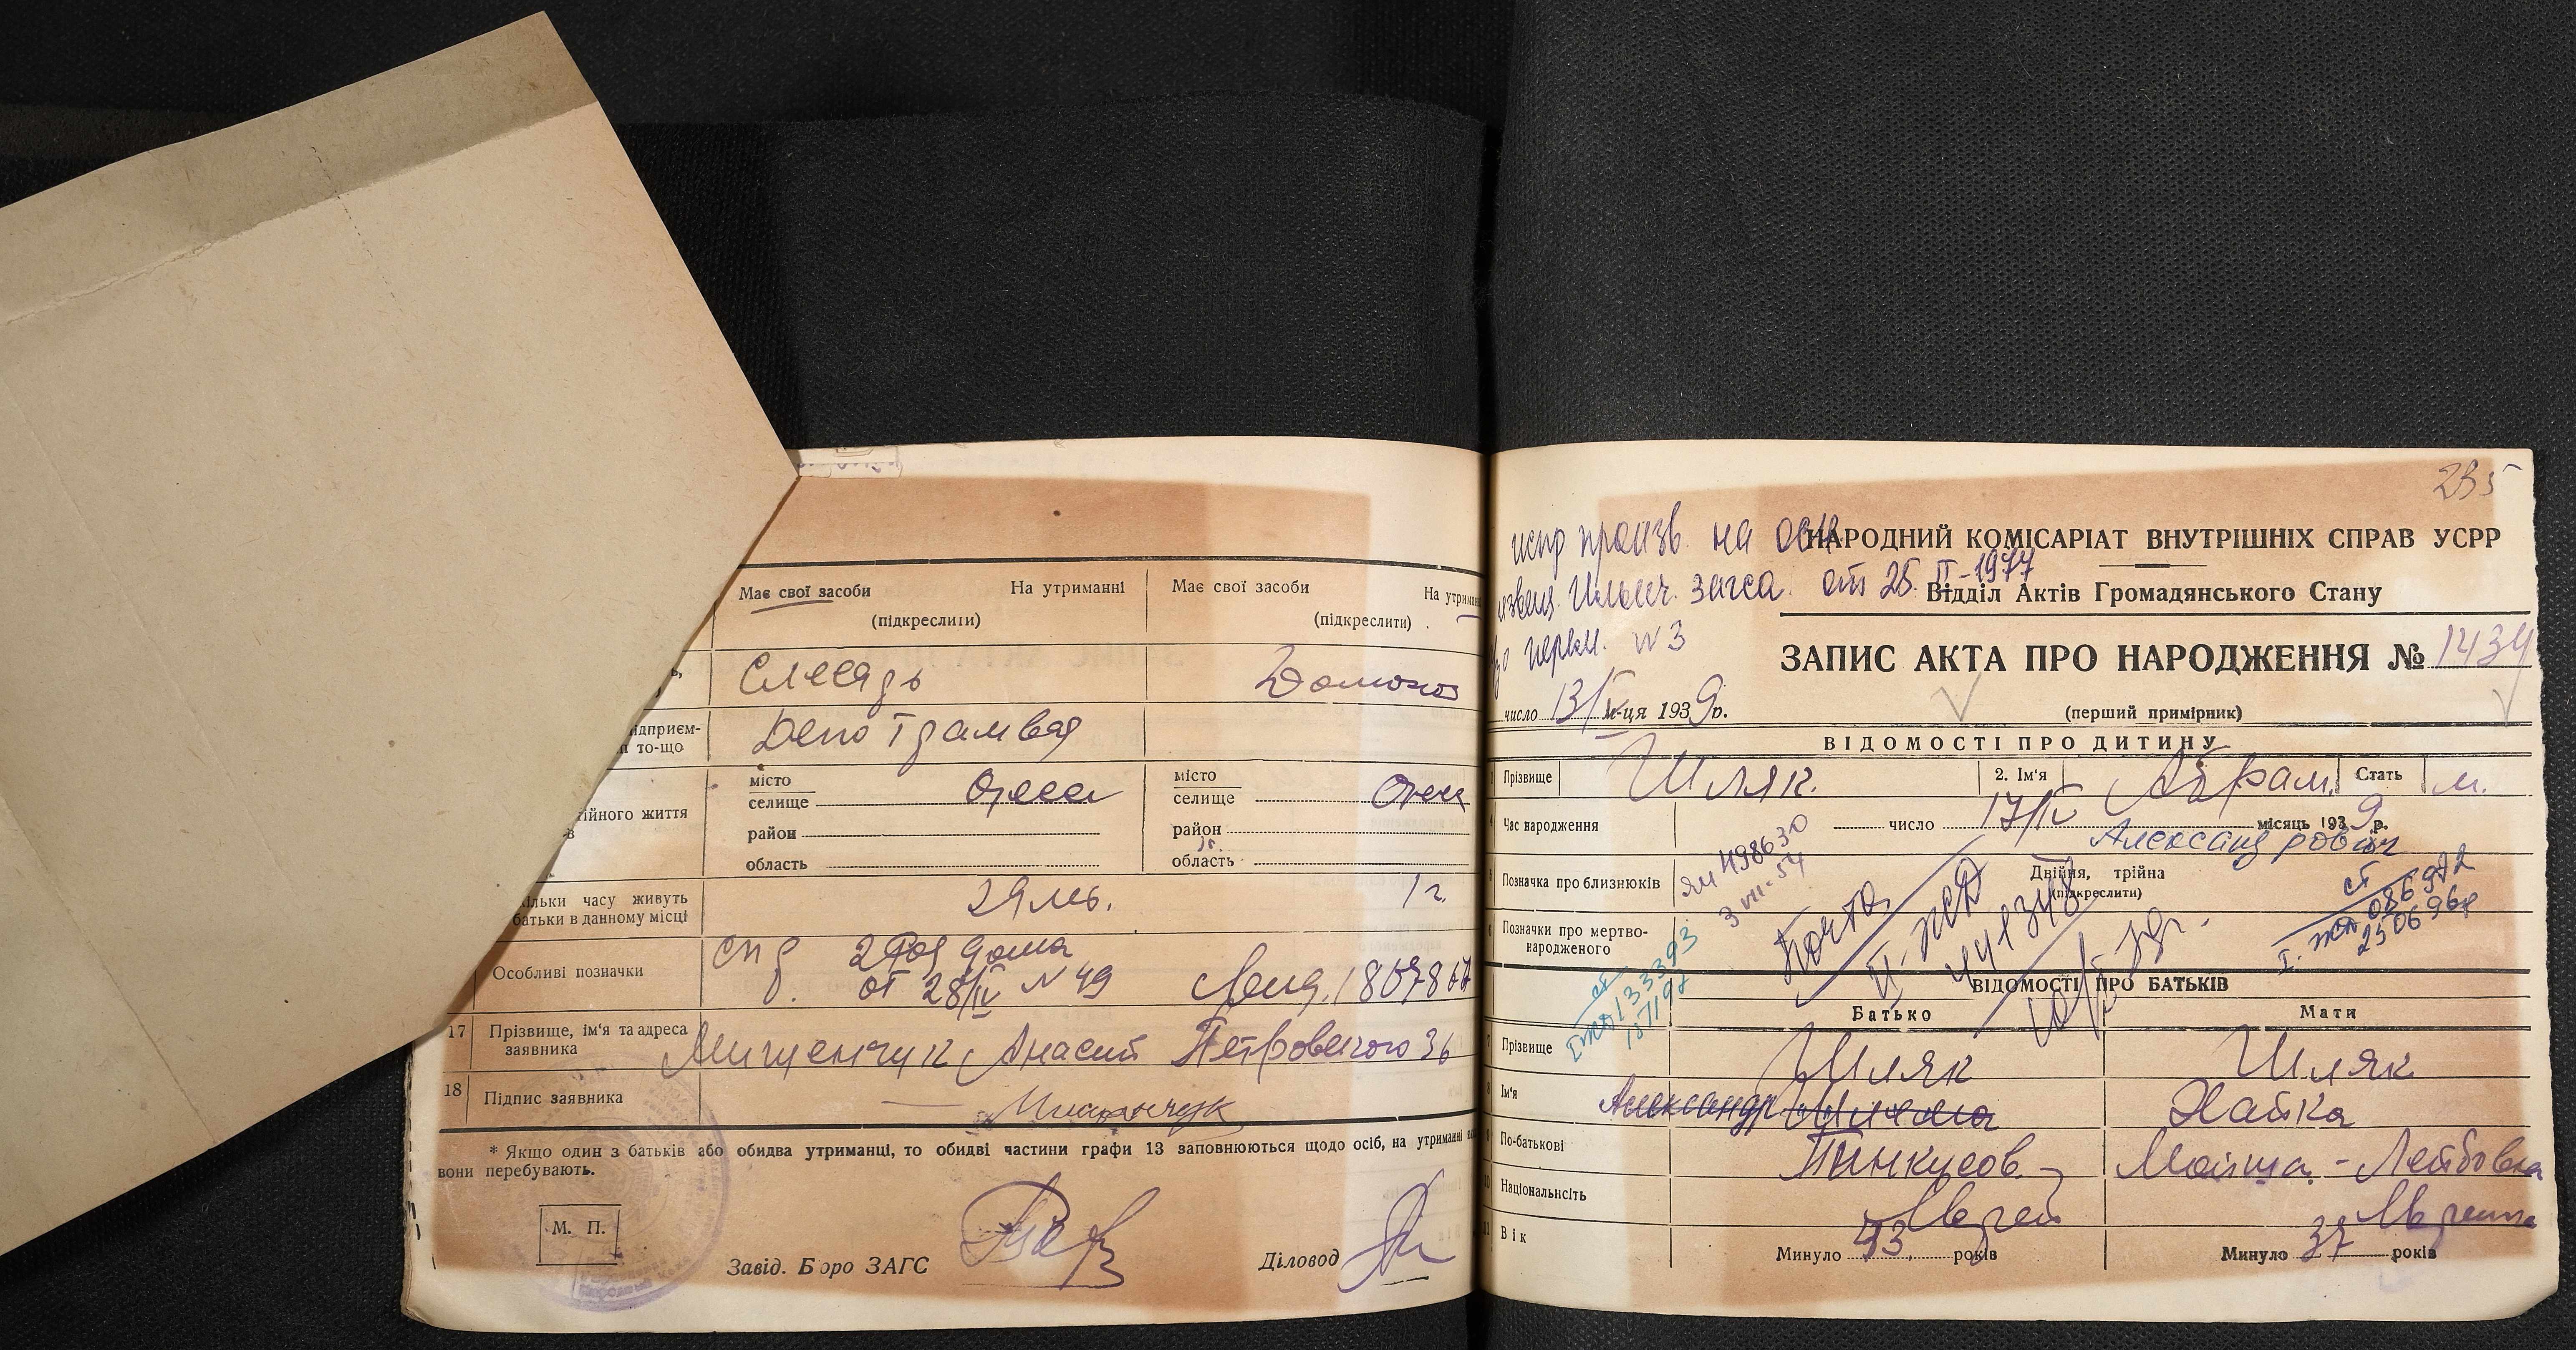 Має свої засоби На утриманні Має свої засоби На утриман
(підкреслити) (підкреслити)
Слесарь Домохоз
ідприєм-
то-що
Депо Трамвая
ійного життя
в
місто
селище Одесса
район
область
місто
селище Одесса
район
область
ільки часу живуть
батьки в данному місці
29 лет. 1 г.
Особливі позначки
спр. 2 Род дома
от 28/IV № 49
17 Прізвище, ім'я та адреса
заявника
Мищенчук Анасий Петровского 36
18 Підпис заявника
Мищенчук
* Якщо один з батьків або обидва утриманці, то обидві частини графи 13 заповнюються щодо осіб, на утриманні
вони перебувають.
М. П.
Завід. Бюро ЗАГС Діловод
235
испр произв. на осн
извещ. Ильич. загса от 25. II-1977
№ 3
НАРОДНИЙ КОМІСАРІАТ ВНУТРІШНІХ СПРАВ УСРР
Відділ Актів Громадянського Стану
ЗАПИС АКТА ПРО НАРОДЖЕННЯ № 1434
число 13/V м-ця 1939 р. (перший примірник)
ВІДОМОСТІ ПРО ДИТИНУ
Прізвище Шляк. 2. Ім'я Абрам. Стать м.
Час народження число 17/IV місяць 1939 р.
Александрович
498630
3 VII-54
Позначка про близнюків Двійня, трійна
(підкреслити)
Позначки про мертво-
народженого
ст
086972
250696р
ст
133393
187197
ВІДОМОСТІ ПРО БАТЬКІВ
Батько Мати
Прізвище Шляк Шляк
Ім'я Александр Хайка
По-батькові Пинкусов. Мойша-Лейбовна
Національність Еврей Еврейка
Вік Минуло 43 років Минуло 37 років